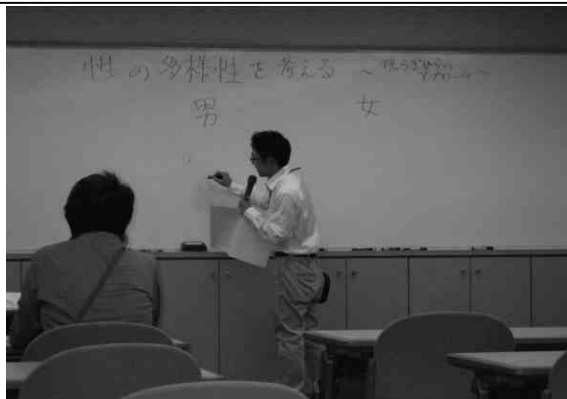 性の多様性を考える ～
男 女